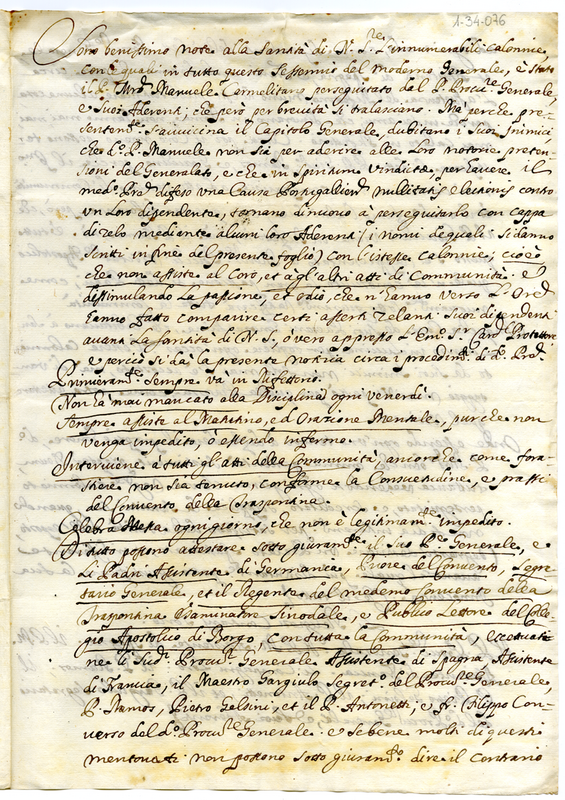 1-34-076
Sono benissimo note alla Santità di N. S.re l'innumerabili calonnie
con le quali in tutto questo Sessennio del moderno Generale, è stato
il P. Mro Manuele Carmelitano perseguitato dal P. Procu.re Generale,
e suoi Aderenti; che però per brevità si tralasciano. Mà perche pre-
sentem.te s'auuicina il Capitolo Generale, dubitano i suoi Inimici
che d.o P. Manuele non sia per aderire alle loro notorie preten-
sioni del Generalato, e che in spiritum vindictæ, per hauere il
med.o difeso vna Causa nullitatis electionis contro
vn loro dipendente, tornano di nuouo a perseguitarlo con cappa
di zelo mediante alcuni loro Aderenti (i nomi de quali si danno
scritti in fine del presente foglio) con l'istesse calonnie; cioè
che non assiste al Coro, et agl'altri atti di Communità. e
dissimulando la passione, et odio, che n'hanno verso l'
hanno fatto comparire certi asserti zelanti suoi dipendenti
auanti la Santità di N. S., ò vero appresso l'Em.o S.r Card. Protettore
e perciò si dà la presente notitia circa i procedim.ti di d.o
Primieram.te sempre và in Refettorio.
Non hà mai mancato alla Disciplina ogni venerdì.
Sempre assiste al Matutino, ed Oratione Mentale, purche non
venga impedito, ò essendo infermo.
Interuiene à tutti gl'atti della Communità, ancorche come fora-
stiere non sia tenuto, conforme la Consuetudine, e prassi
del Conuento della Traspontina.
Celebra Messa ogni giorno, che non è legitimam.te impedito.
Di tutto possono attestare sotto giuram.to il suo P.re Generale, e
li Padri Assistente di Germania, Priore del Conuento, Segre-
tario Generale, et il Regente del medemo Conuento della
Traspontina Esaminatore Sinodale, e Publico Lettore del Colle-
gio Apostolico di Borgo, con tutta la Communità, eccettuato-
ne li Sud.i Procu.re Generale Assistente di Spagna Assistente
di Francia, il Maestro Gargiulo Segret.o del Procu.re Generale,
P. Ramos, Pietro Gelsini, et il P. Antonetti; e fr. Filippo Con-
uerso del d.o Procu.re Generale. e sebene molti di questi
mentouati non possono sotto giuram.to dire il contrario